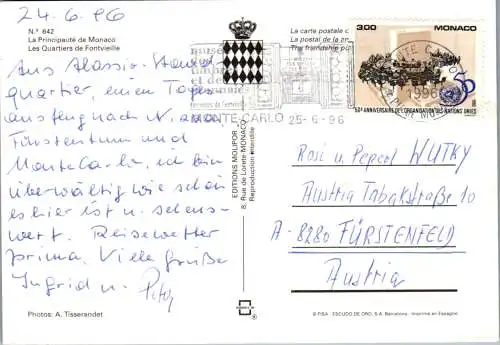 24.6.96
N.º 642
La Principauté de Monaco
Les Quartiers de Fontvieille
Aus Alassio-Stand-
quartier, einen Tages-
ausflug nach N.
Fürstentum und
Monte Carlo, ich bin
überwältig wie schön
es hier ist u. sehens-
wert. Reisewetter
prima. Viele Grüße
Ingrid u. Peter
Photos: A. Tisserandet
EDITIONS MOLIPOR
8, Rue de Lorète MONACO
Reproduction interdite
La carte postale
La postal de la
The friendship
musée
MONTE-CARLO 25-6-96
3,00 MONACO
50e ANNIVERSAIRE DE L'ORGANISATION DES NATIONS UNIES
MONTE C
1996
Rosi u. Peperl WUTKY
Austria Tabakstraße 10
A-8280 FÜRSTENFELD
Austria
© FISA - ESCUDO DE ORO, S.A. Barcelona - Imprimé en Espagne